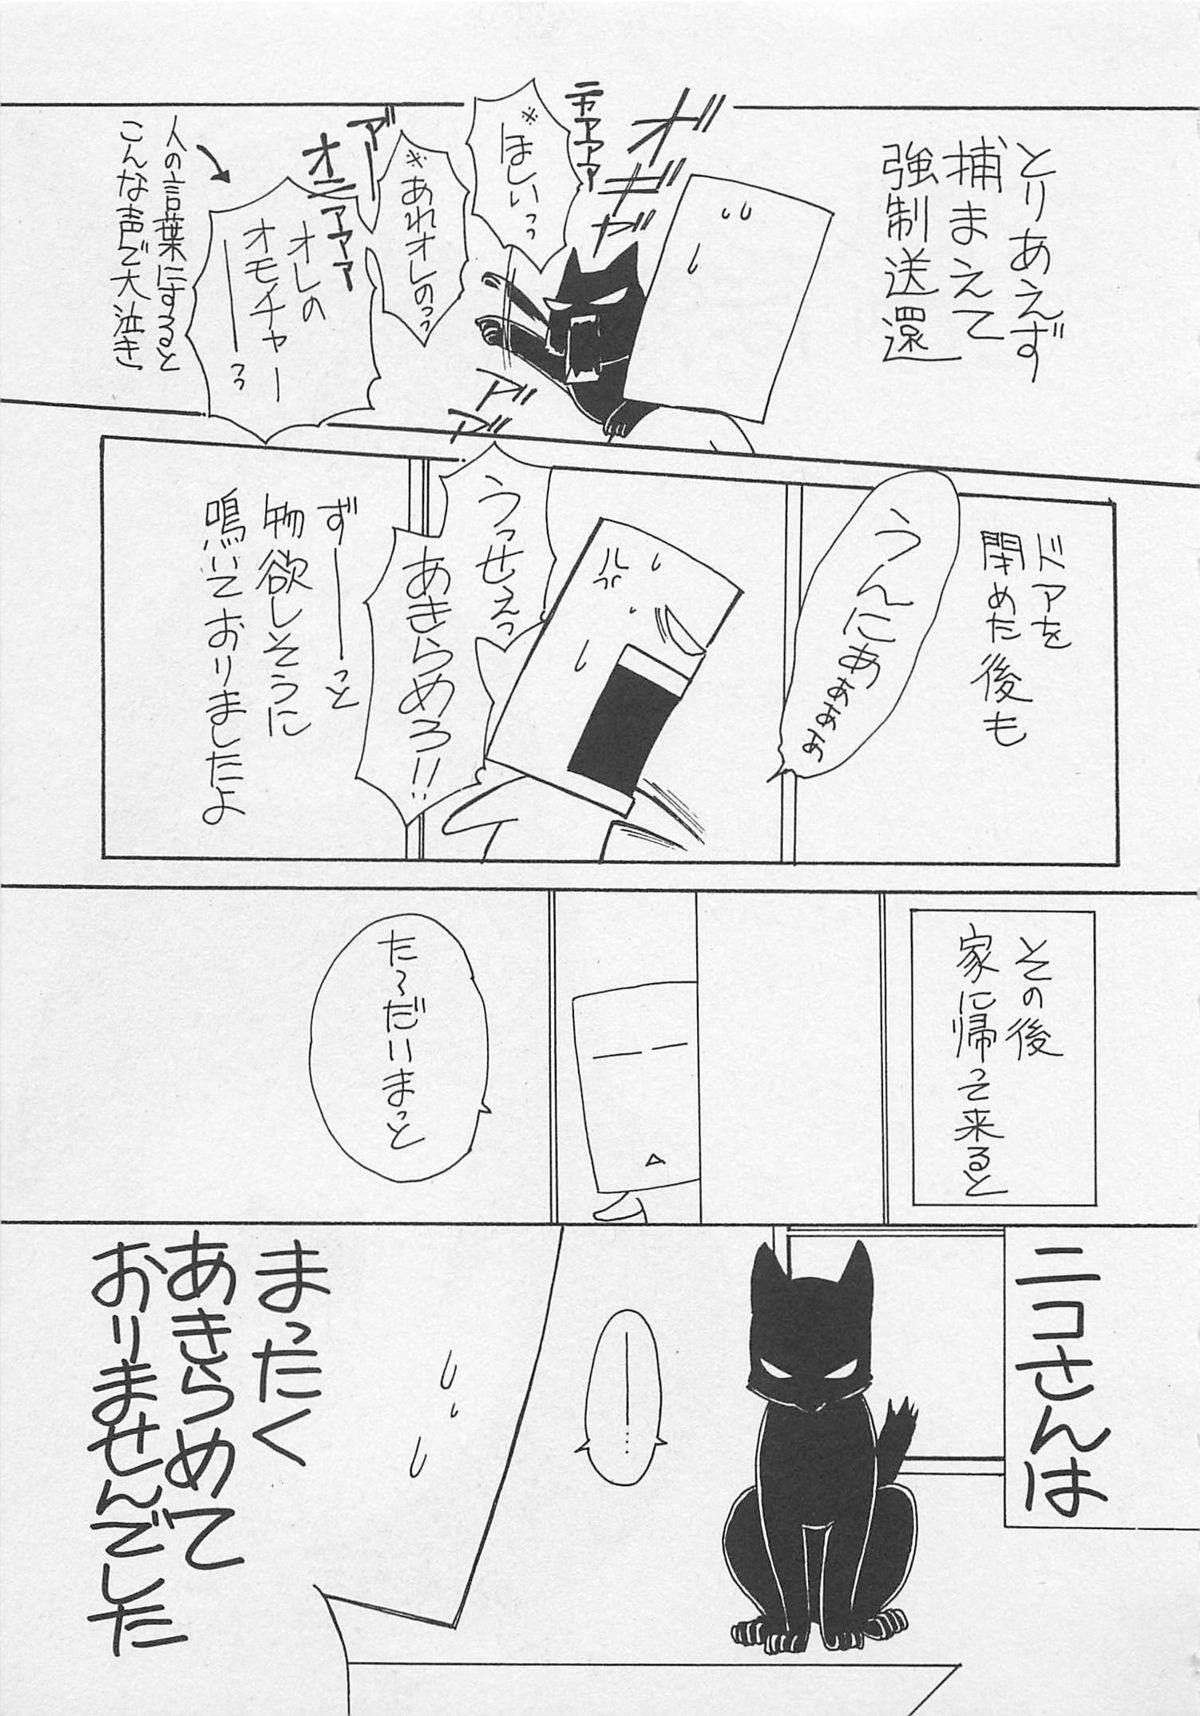 とりあえず
捕まえて
強制送還
ニャアアアア
※ほしいっっ
※あれオレのっっ
オニアアア
アー
オレの
オモチャー
――っっ
人の言葉にすると
こんな声で大泣き
ドアを
閉めた後も
うんにあぁぁぁ
うっせぇっ
あきらめろ!!
ずーーっと
物欲しそうに
鳴いておりましたよ
その後
家に帰って来ると
た〜だいまっと
ニコさんは
――……
まったく
あきらめて
おりませんでした